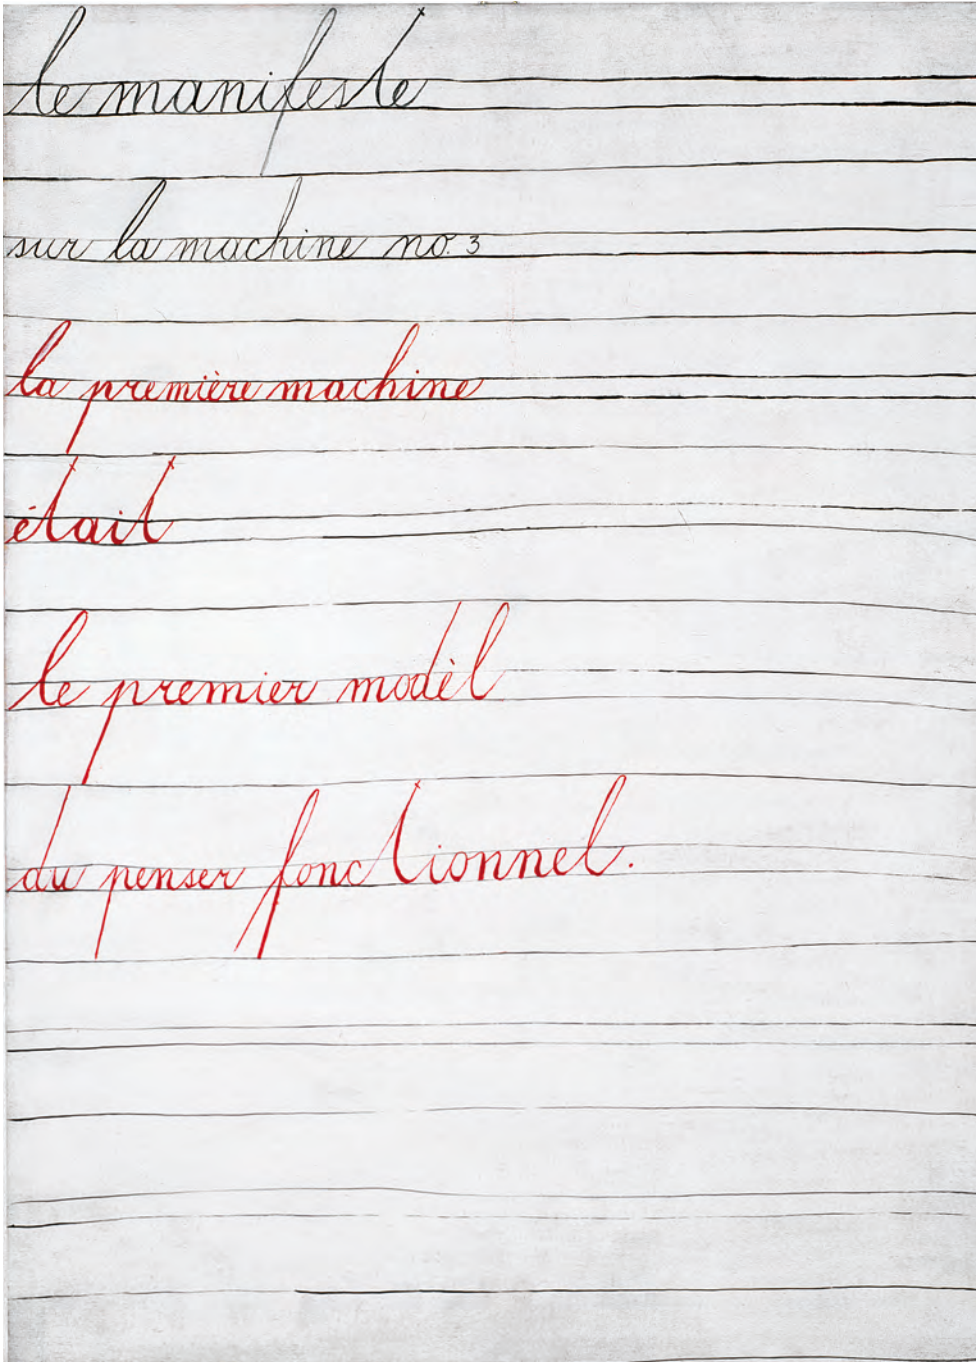 le manifeste
sur la machine no. 3
la première machine
était
le premier modèl
du penser fonctionnel.